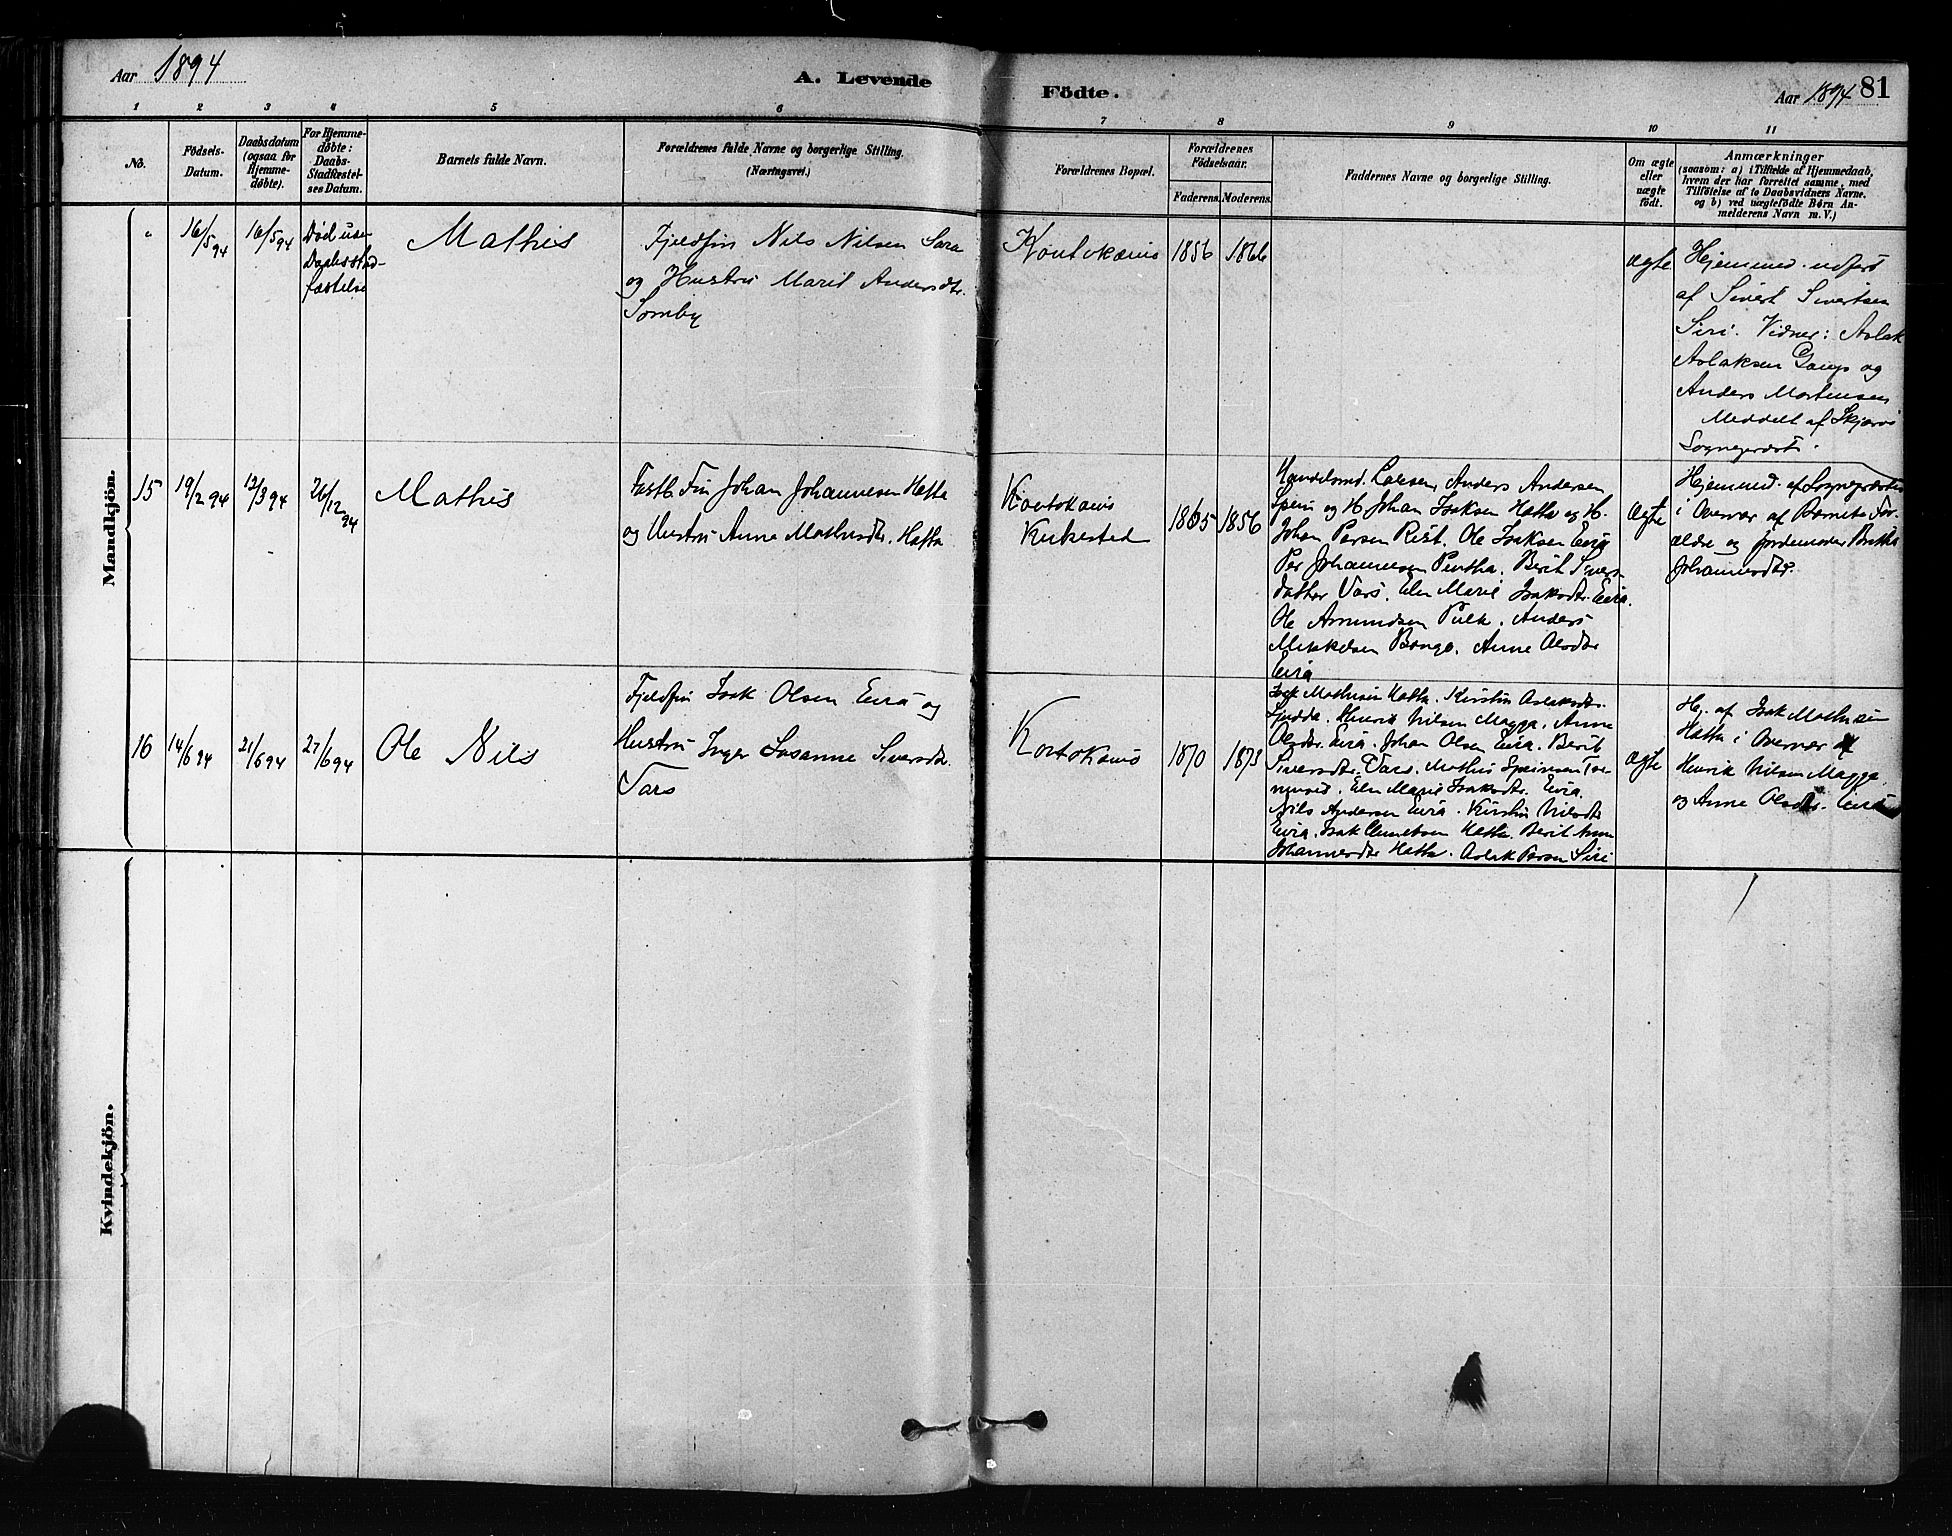 Aar 1894
A. Levende
Födte.
Aar 1894 81
1 2 3 4 5 6 7 8 9 10 11
No.
Födsels-
Datum.
Daabsdatum
(ogsaa for
Hjemme-
døbte).
For Hjemme-
døbte:
Daabs-
Stadfæstel-
ses Datum.
Barnets fulde Navn.
Forældrenes fulde Navne og borgerlige Stilling.
(Næringsvei.)
Forældrenes Bopæl.
Forældrenes
Födselsaar.
Faderens. Moderens.
Faddernes Navne og borgerlige Stilling.
Om ægte
eller
uægte
født.
Anmærkninger
(saasom: a) i Tilfælde af Hjemmedaab,
hvem der har forrettet samme, med
Tilföielse af to Daabsvidners Navne,
og b) ved uægtefödte Börn An-
melderens Navn m. V.)
Mandkjön.
"
16/5 94
16/5 94
Død uden
Daabsstad-
fæstelse
Mathis
Fjeldfin Nils Nilsen Sara
og Hustru Marit Andersdtr.
Somby
Koutokæino
1856
1866
ægte
Hjemmed. udført
af Sivert Sivertsen
Siri. Vidner: Aslak
Aslaksen Gaup og
Anders Mortensen
Meddelt af Skjervø
Sognepræst.
15
19/2 94
12/3 94
26/12 94
Mathis
Fastb. Fin Johan Johannesen Hætta
og Hustru Anne Mathisdtr. Hætta
Koutokæino
Kirkested
1865
1856
Handelsmd. Anders Andersen
Spein og H. Johan Isaksen Hætta og H.
Johan Persen Rist. Ole Isaksen Eira
Per Johannesen Pentha. Berit Sivers-
datter Vars. Elen Marie Isaksdtr. Eira.
Ole Amundsen Pulk. Anders
Mikkelsen Bongo. Anne Olsdtr
Eira
ægte
Hjemmed. af Sognepræsten
i Overvær af Barnets For-
ældre og Jordemoder Britha
Johannesdtr.
16
14/6 94
21/6 94
27/6 94
Ole Nils
Fjeldfin Isak Olsen Eira og
Hustru Inger Susanne Siversdtr.
Vars
Koutokæino
1870
1873
Isak Mathisen Hætta. Kirstin Aslaksdtr.
Henrik Nilsen Magga. Anne
Olsdtr. Eira. Johan Olsen Eira. Berit
Siversdtr. Vars. Mathis Speinsen
Elen Marie Isaksdtr. Eira.
Nils Andersen Eira. Kirstin Nilsdtr
Eira. Isak Clemetsen Hætta. Berit Anne
Johannesdtr Hætta. Aslak Persen Siri
ægte
Hj. af Isak Mathisen
Hætta i Overvær af
Henrik Nilsen Magga
og Anne Olsdtr. Eira
Kvindekjön.